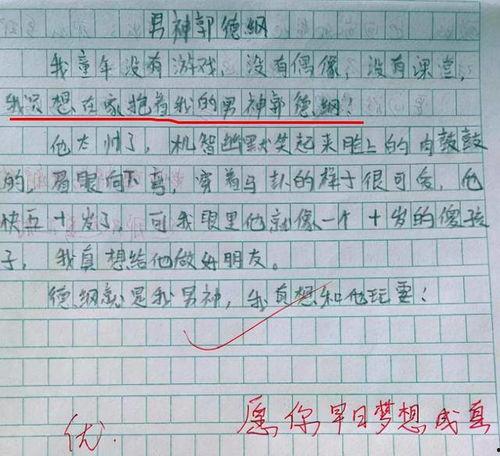 男神郭德纲
我童年没有游戏，没有偶像，没有课堂，
我只想在家抱着我的男神郭德纲！
他太帅了，机智幽默笑起来脸上的肉鼓鼓
的，眉眼向下弯，穿着马卦的样子很可爱，他
快五十岁了，可我眼里他就像一个十岁的傻孩
子，我真想给他做好朋友。
德纲就是我男神，我真想和他玩耍！
优.
愿你早日梦想成真